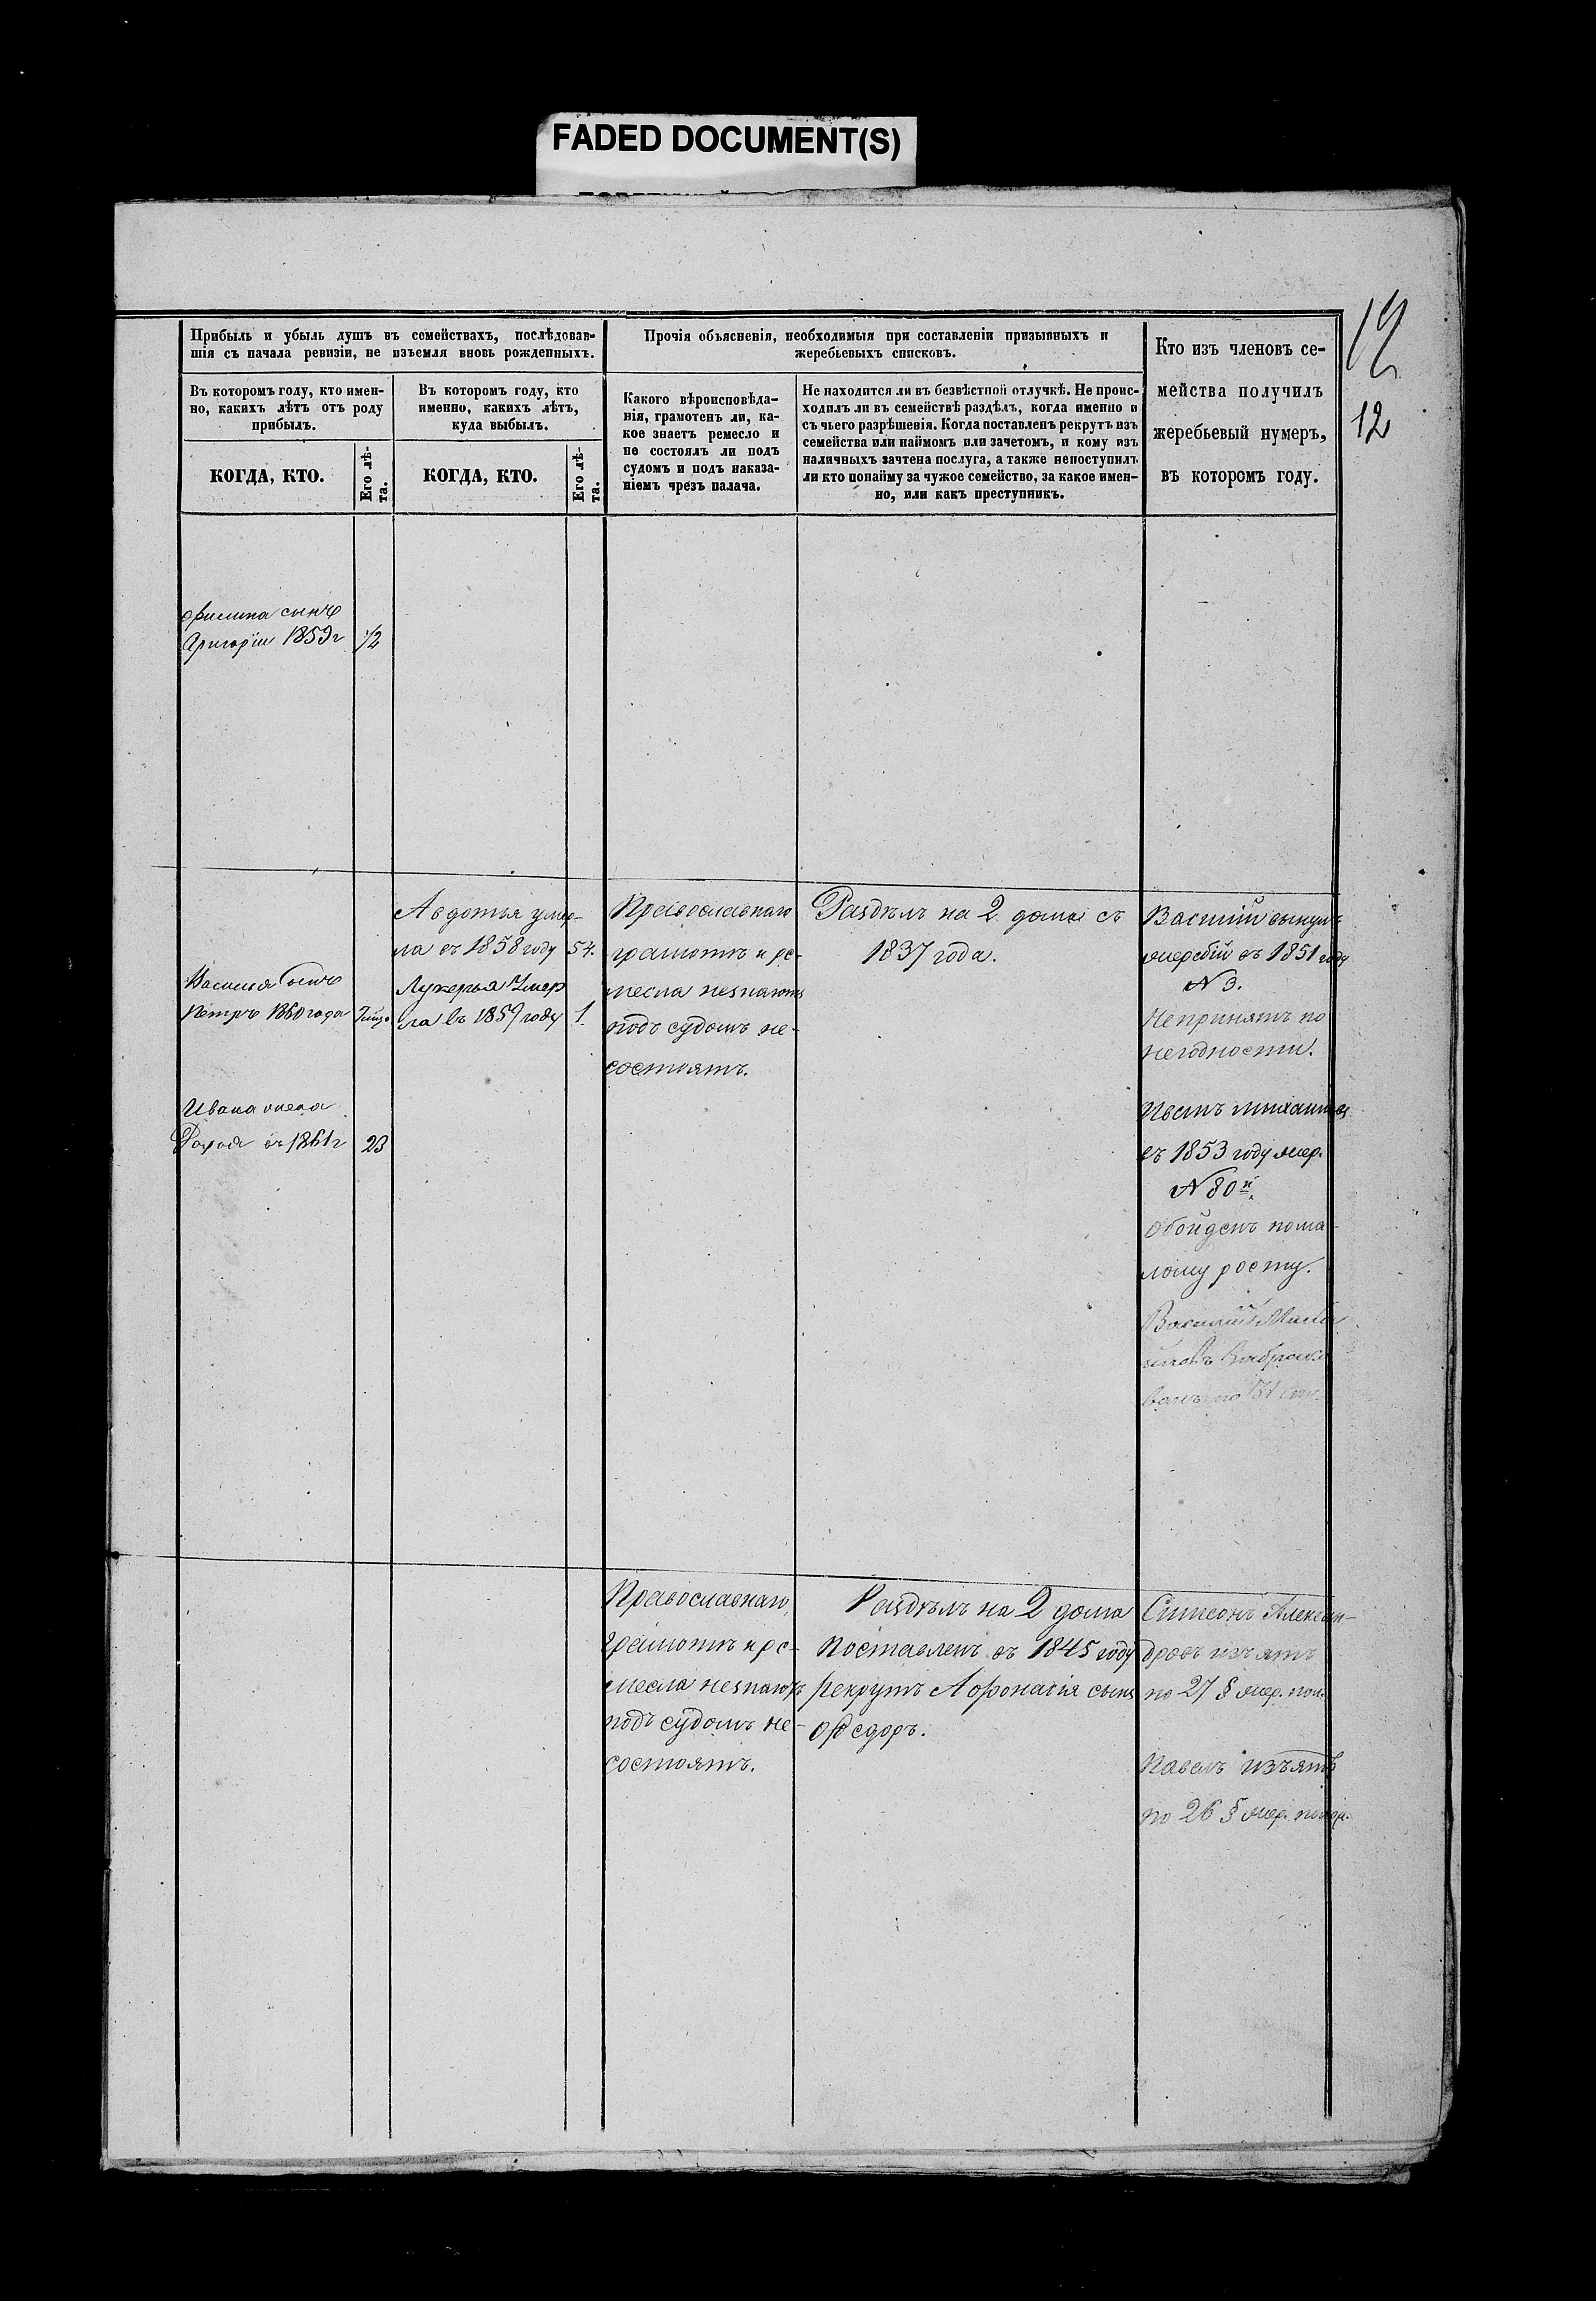 FADED DOCUMENT(S)
12
12
Прибыль и убыль душъ въ семействахъ, послѣдовав-
шія съ начала ревизіи, не изъемля вновь рожденныхъ.
Прочія объясненія, необходимыя при составленіи призывныхъ и
жеребьевыхъ списковъ.
Кто изъ членовъ се-
мейства получилъ
жеребьевый нумеръ,
въ которомъ году.
Въ которомъ году, кто имен-
но, какихъ лѣтъ отъ роду
прибылъ.
Въ которомъ году, кто
именно, какихъ лѣтъ,
куда выбылъ.
Какого вѣроисповѣда-
нія, грамотенъ ли, ка-
кое знаетъ ремесло и
не состоялъ ли подъ
судомъ и подъ наказа-
ніемъ чрезъ палача.
Не находится ли въ безвѣстной отлучкѣ. Не проис-
ходилъ ли въ семействѣ раздѣлъ, когда именно и
съ чьего разрѣшенія. Когда поставленъ рекрутъ изъ
семейства или наймомъ или зачетомъ, и кому изъ
наличныхъ зачтена послуга, а также непоступилъ
ли кто понайму за чужое семейство, за какое имен-
но, или какъ преступникъ.
КОГДА, КТО.
Его лѣ-
та.
КОГДА, КТО.
Его лѣ-
та.
Филипа сынъ
Григорій 1859 г
1/2
Василія сынъ
Петръ 1860 года
Ивана жена
въ 1861 г
23
Авдотья умер-
ла въ 1858 году
54.
Лукерья умер
ла въ 1859 году
1.
Православнаго
грамотъ и ре-
месла незнаютъ
подъ судомъ не-
состоятъ.
Раздѣлъ на 2 дома съ
1837 года.
Василій вынулъ
жеребій въ 1851 году
N 3.
Непринятъ по
негодности.
въ 1853 году жер.
N 80й
Обойденъ пома-
лому росту.
Василій
Православнаго
грамотъ и ре-
месла незнаютъ
подъ судомъ не-
состоятъ.
Раздѣлъ на 2 дома
Поставленъ въ 1845 году
рекрутъ Афонасія сынъ
Федоръ.
Симеонъ Алексан-
дровъ изъятъ
по 27 § жер. пол.
Павелъ изъятъ
по 26 § жер. полож.